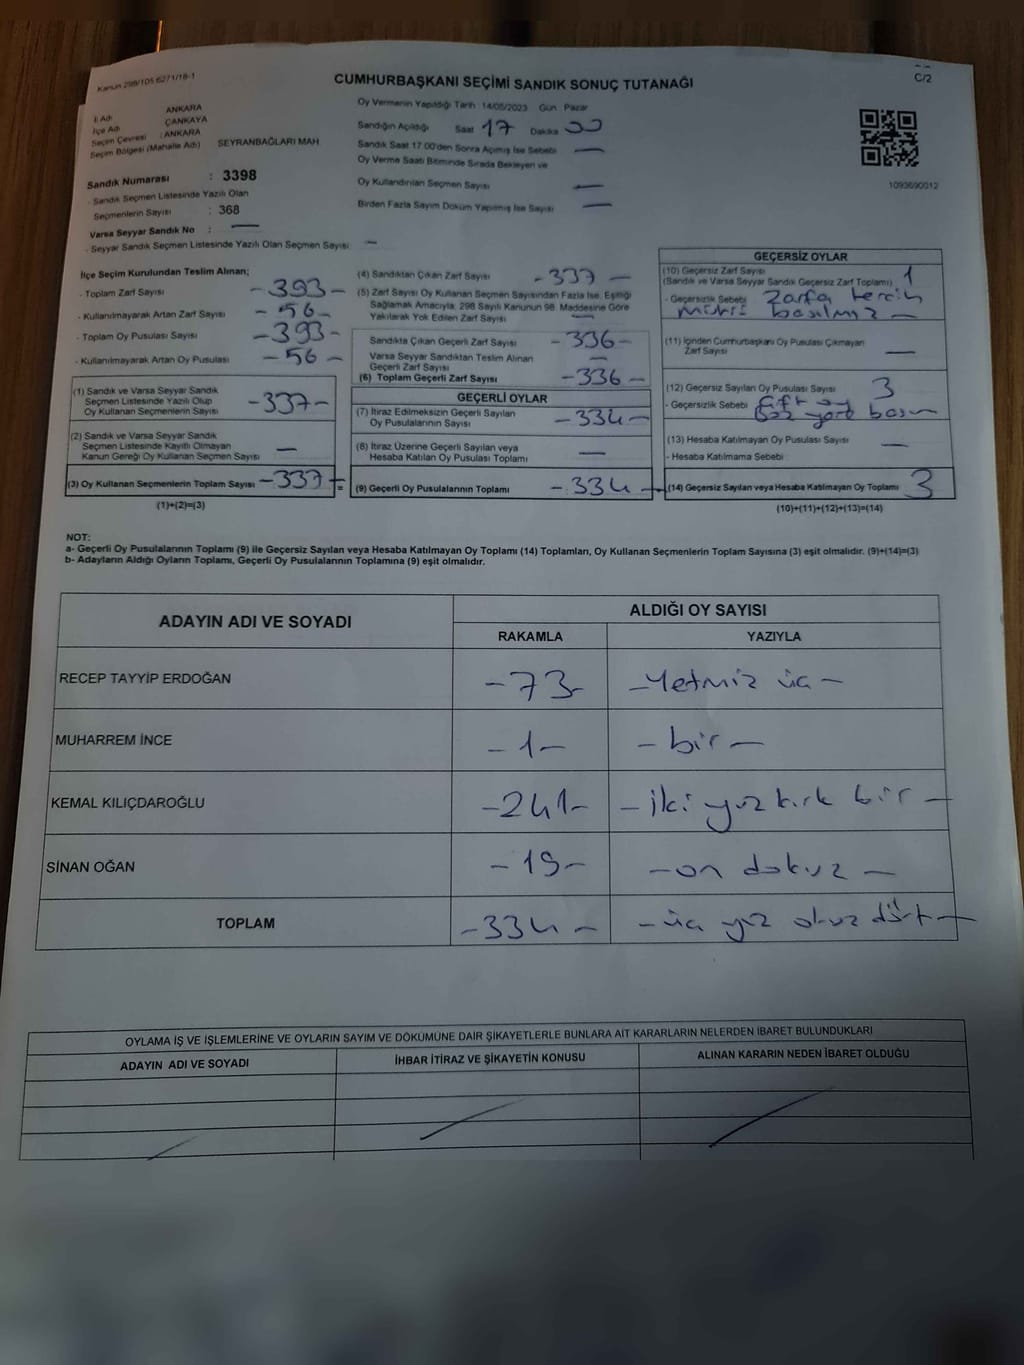 Kanun 298/105 6271/18-1
CUMHURBAŞKANI SEÇİMİ SANDIK SONUÇ TUTANAĞI
C/2
İl Adı ANKARA
İlçe Adı ÇANKAYA
Seçim Çevresi : ANKARA
Seçim Bölgesi (Mahalle Adı) SEYRANBAĞLARI MAH
Sandık Numarası : 3398
- Sandık Seçmen Listesinde Yazılı Olan
Seçmenlerin Sayısı : 368
Varsa Seyyar Sandık No : —
- Seyyar Sandık Seçmen Listesinde Yazılı Olan Seçmen Sayısı: —
Oy Vermenin Yapıldığı Tarih : 14/05/2023 Gün Pazar
Sandığın Açıldığı Saat 17 Dakika
Sandık Saat 17.00'den Sonra Açımış İse Sebebi —
Oy Verme Saati Bitiminde Sırada Bekleyen ve
Oy Kullandırılan Seçmen Sayısı —
Birden Fazla Sayım Döküm Yapılmış İse Sayısı —
1093690012
İlçe Seçim Kurulundan Teslim Alınan;
- Toplam Zarf Sayısı -393-
- Kullanılmayarak Artan Zarf Sayısı -56-
- Toplam Oy Pusulası Sayısı -393-
- Kullanılmayarak Artan Oy Pusulası -56-
(1) Sandık ve Varsa Seyyar Sandık
Seçmen Listesinde Yazılı Olup
Oy Kullanan Seçmenlerin Sayısı -337-
(2) Sandık ve Varsa Seyyar Sandık
Seçmen Listesinde Kayıtlı Olmayan
Kanun Gereği Oy Kullanan Seçmen Sayısı —
(3) Oy Kullanan Seçmenlerin Toplam Sayısı -337-
(1)+(2)=(3)
=
(4) Sandıktan Çıkan Zarf Sayısı -337-
(5) Zarf Sayısı Oy Kullanan Seçmen Sayısından Fazla İse, Eşitliği
Sağlamak Amacıyla, 298 Sayılı Kanunun 98. Maddesine Göre
Yakılarak Yok Edilen Zarf Sayısı —
Sandıkta Çıkan Geçerli Zarf Sayısı -336-
Varsa Seyyar Sandıktan Teslim Alınan
Geçerli Zarf Sayısı —
(6) Toplam Geçerli Zarf Sayısı -336-
GEÇERLİ OYLAR
(7) İtiraz Edilmeksizin Geçerli Sayılan
Oy Pusulalarının Sayısı -334-
(8) İtiraz Üzerine Geçerli Sayılan veya
Hesaba Katılan Oy Pusulası Toplamı —
(9) Geçerli Oy Pusulalarının Toplamı -334-
GEÇERSİZ OYLAR
(10) Geçersiz Zarf Sayısı 1
(Sandık ve Varsa Seyyar Sandık Geçersiz Zarf Toplamı)
- Geçersizlik Sebebi Zarfa tercih
mührü basılmış -
(11) İçinden Cumhurbaşkanı Oy Pusulası Çıkmayan
Zarf Sayısı —
(12) Geçersiz Sayılan Oy Pusulası Sayısı 3
- Geçersizlik Sebebi çift oy
(13) Hesaba Katılmayan Oy Pusulası Sayısı —
- Hesaba Katılmama Sebebi
(14) Geçersiz Sayılan veya Hesaba Katılmayan Oy Toplamı 3
(10)+(11)+(12)+(13)=(14)
NOT:
a- Geçerli Oy Pusulalarının Toplamı (9) ile Geçersiz Sayılan veya Hesaba Katılmayan Oy Toplamı (14) Toplamları, Oy Kullanan Seçmenlerin Toplam Sayısına (3) eşit olmalıdır. (9)+(14)=(3)
b- Adayların Aldığı Oyların Toplamı, Geçerli Oy Pusulalarının Toplamına (9) eşit olmalıdır.
ADAYIN ADI VE SOYADI
ALDIĞI OY SAYISI
RAKAMLA YAZIYLA
RECEP TAYYİP ERDOĞAN -73- -Yetmiz üç-
MUHARREM İNCE -1- -bir-
KEMAL KILIÇDAROĞLU -241- -iki yüz kırk bir-
SİNAN OĞAN -19- -on dokuz-
TOPLAM -334- -üç yüz otuz dört-
OYLAMA İŞ VE İŞLEMLERİNE VE OYLARIN SAYIM VE DÖKÜMÜNE DAİR ŞİKAYETLERLE BUNLARA AİT KARARLARIN NELERDEN İBARET BULUNDUKLARI
ADAYIN ADI VE SOYADI İHBAR İTİRAZ VE ŞİKAYETİN KONUSU ALINAN KARARIN NEDEN İBARET OLDUĞU